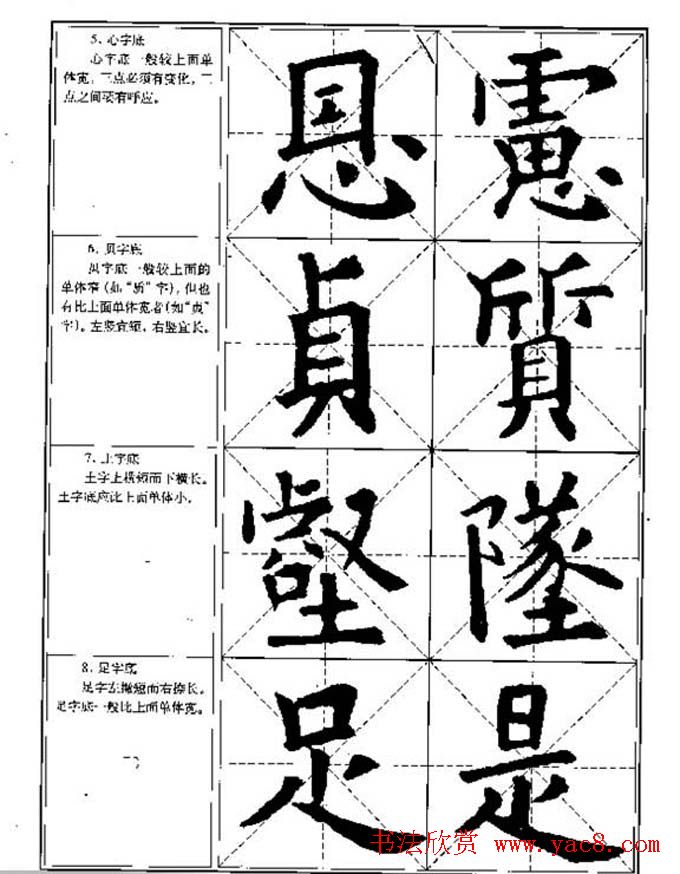 5、心字底
心字底一般较上面单
体宽，三点必须有变化，三
点之间要有呼应。
恩 慮
6、贝字底
贝字底一般较上面的
单体窄（如“质”字），但也
有比上面单体宽者（如“贞”
字）。左竖宜短，右竖宜长。
貞 質
7、土字底
土字上横短而下横长。
土字底应比上面单体小。
壑 墜
8、足字底
足字左撇短而右捺长。
足字底一般比上面单体宽。
足 是
书法欣赏 www.yac8.com